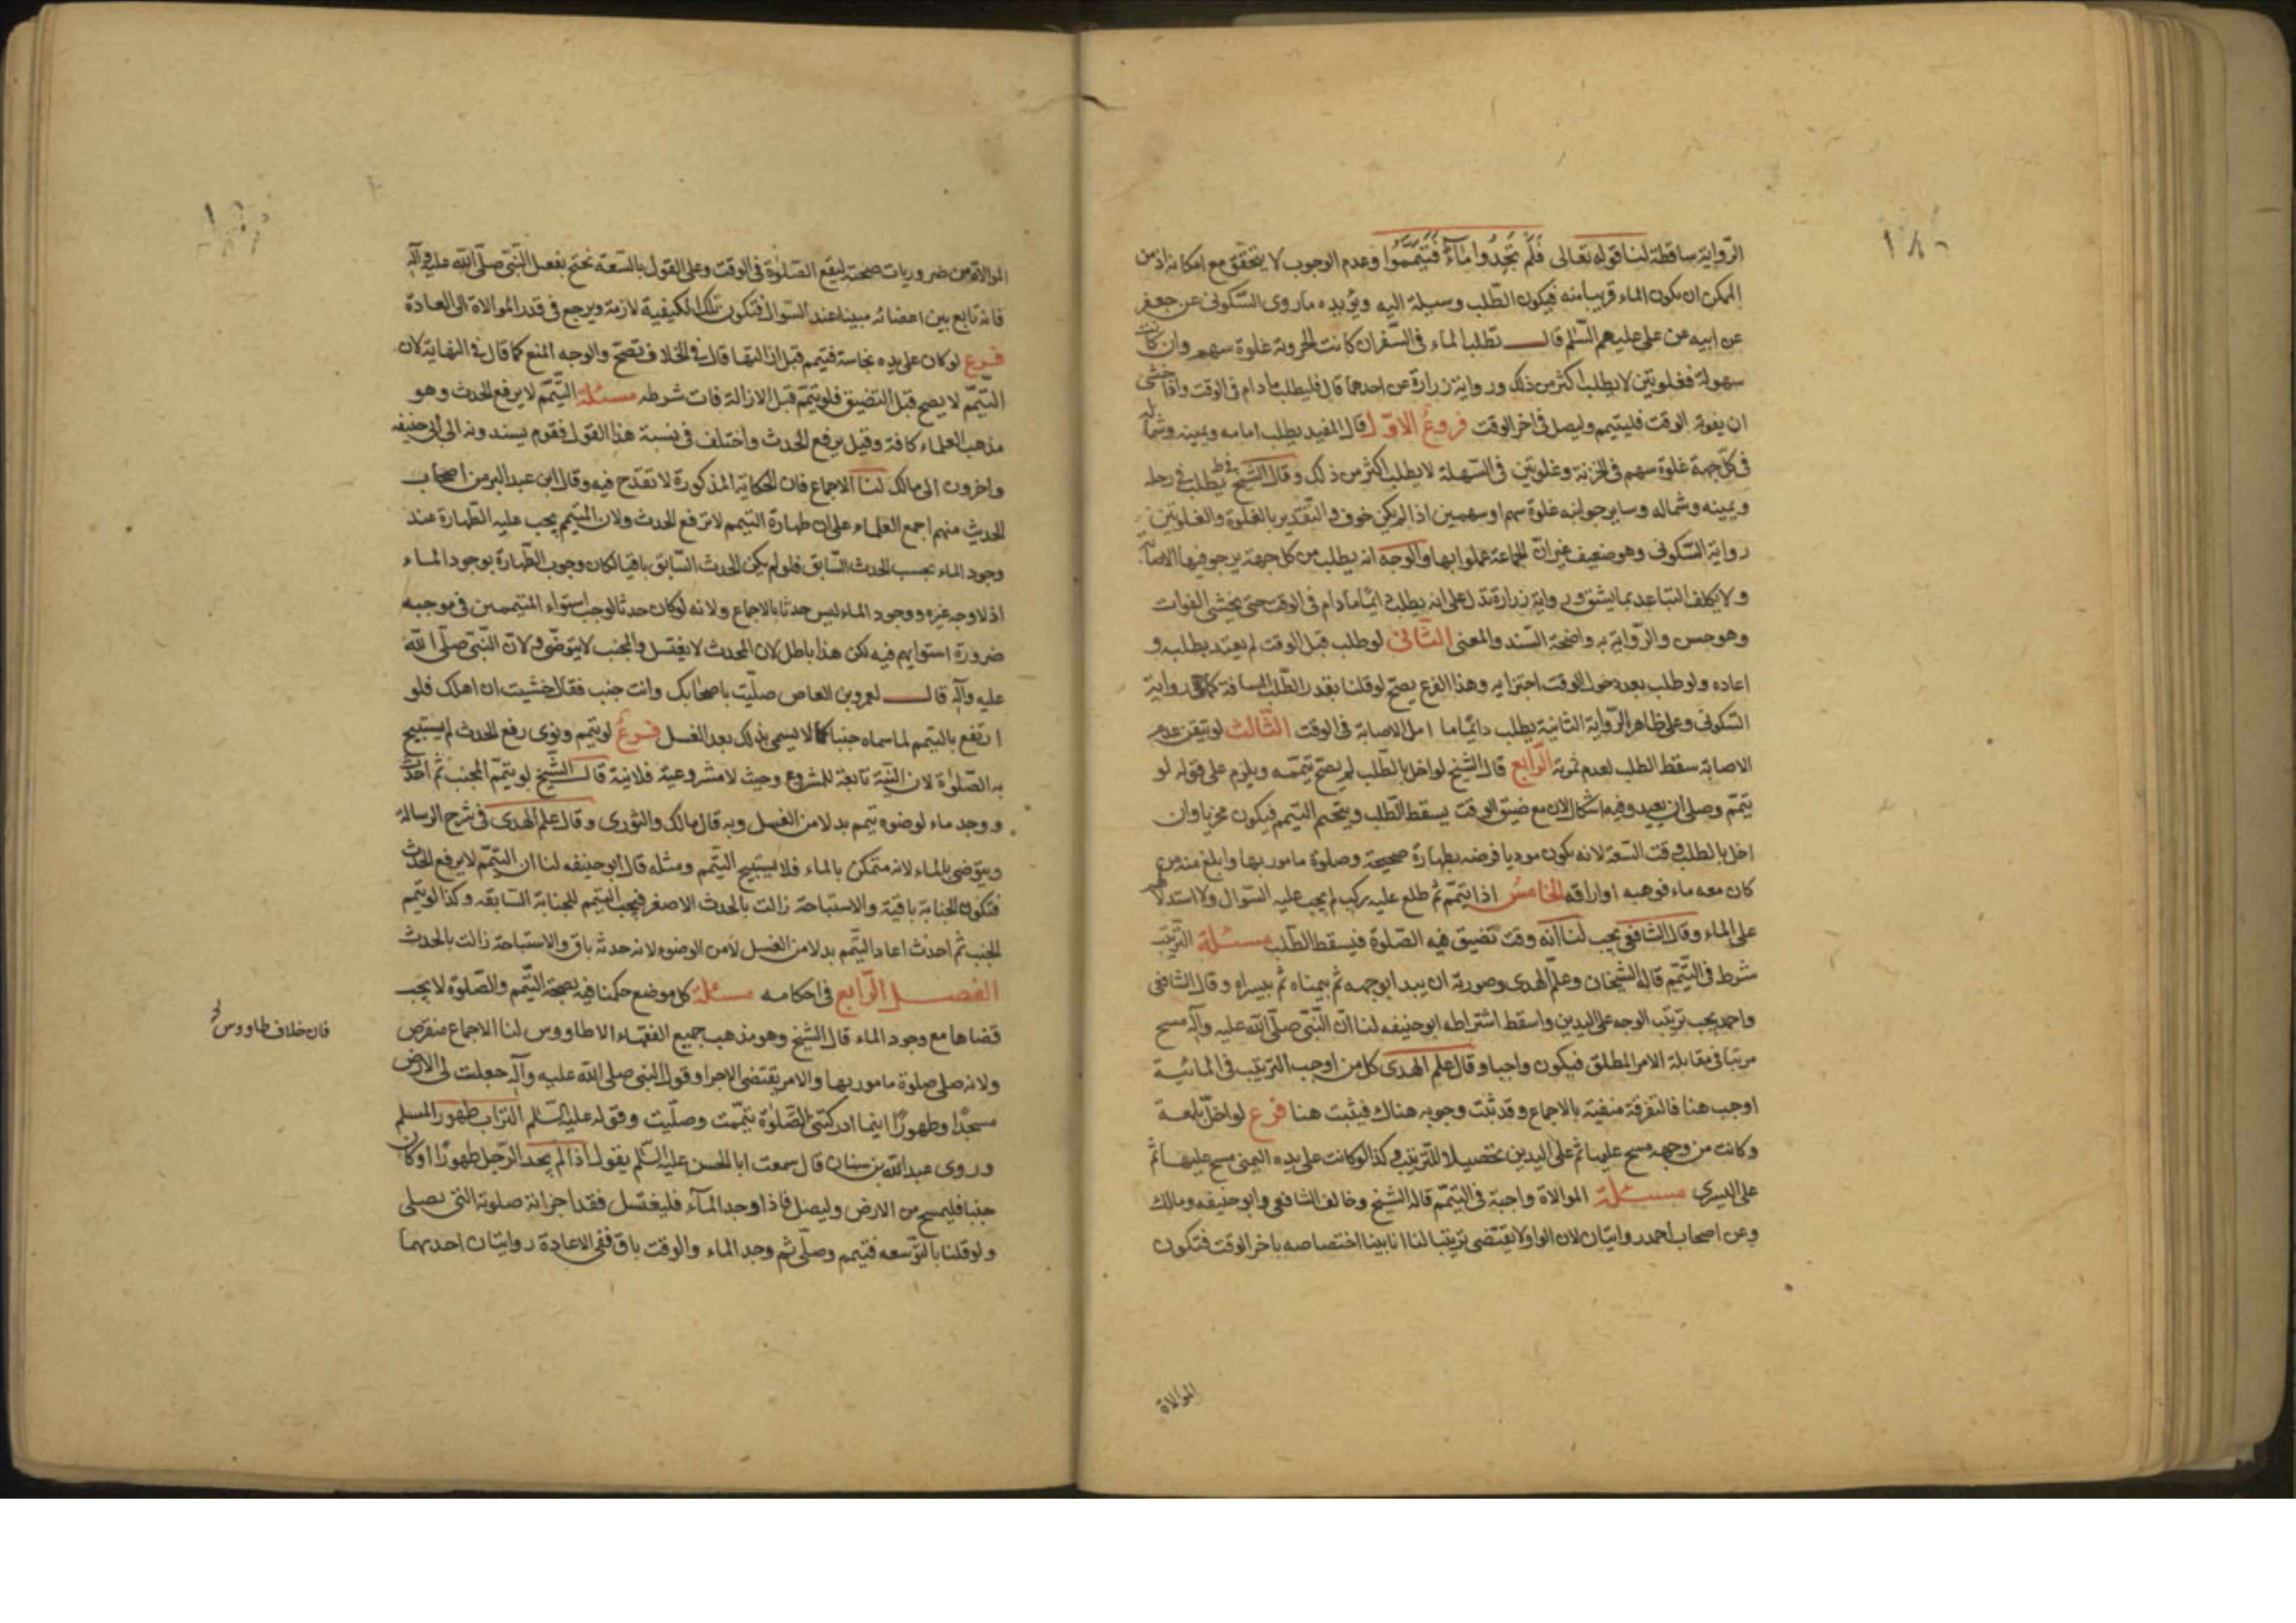 الرواية ساقطة لنا قوله تعالى فَلَمْ تَجِدُوا مَاءً فَتَيَمَّمُوا وعدم الوجوب لا يتحقق مع امكانه اذ من
الممكن ان يكون الماء قريبا منه فيكون الطلب وسيلة اليه ويؤيده ما روى السكونى عن جعفر
عن ابيه عن على عليهم السلم قال تطلب الماء فى السفر ان كانت الحزونة غلوة سهم وان كانت
سهولة فغلوتين لا يطلب اكثر من ذلك ورواية زرارة عن احدهما قال فليطلب ما دام فى الوقت واذا خشى
ان يفوته الوقت فليتيمم وليصل فى اخر الوقت فروع الاول قال المفيد يطلب امامه ويمينه وشماله
فى كل جهة غلوة سهم فى الحزنة وغلوتين فى السهلة لا يطلب اكثر من ذلك وقال الشيخ فى ط يطلب فى رحله
ويمينه وشماله وساير جوانبه غلوة سهم او سهمين اذا لم يكن خوف والتقدير بالغلوة والغلوتين
رواية السكونى وهو ضعيف غير ان الجماعة عملوا بها والوجه انه يطلب من كل جهة يرجو فيها الاصابة
ولا يكلف التباعد بما يشق ورواية زرارة تدل على انه يطلب دائما ما دام فى الوقت حتى يخشى الفوات
وهو حسن والرواية به واضحة السند والمعنى الثانى لو طلب قبل الوقت لم يعتد بطلبه و
اعاده ولو طلب بعد دخول الوقت اجتزا به وهذا الفرع يصح لو قلنا بقدر الطلب المسافة كما فى رواية
السكونى وعلى ظاهر الرواية الثانية يطلب دائما ما امل الاصابة فى الوقت الثالث لو تيقن عدم
الاصابة سقط الطلب لعدم ثمرته الرابع قال الشيخ لو اخل بالطلب لم يصح تيممه ويلزم على قوله لو
تيمم وصلى ان يعيد وفيه اشكال لان مع ضيق الوقت يسقط الطلب ويتحتم التيمم فيكون مجزيا وان
اخل بالطلب وقت السعة لانه يكون موديا فرضه بطهارة صحيحة وصلوة مامور بها وابلغ منه من
كان معه ماء فوهبه او اراقه الخامس اذا تيمم ثم طلع عليه ركب لم يجب عليه السوال ولا استدلالهم
على الماء وقال الشافعى يجب لنا انه وقت تضيق فيه الصلوة فيسقط الطلب مسئلة الترتيب
شرط فى التيمم قاله الشيخان وعلم الهدى وصورته ان يبدا بوجهه ثم بيمناه ثم بيسراه وقال الشافعى
واحمد يجب ترتيب الوجه على اليدين واسقط اشتراطه ابو حنيفه لنا ان النبى صلى الله عليه وآله مسح
مرتبا فى مقابلة الامر المطلق فيكون واجبا وقال علم الهدى كل من اوجب الترتيب فى المائية
اوجب هنا فالتفرقة منفية بالاجماع وقد ثبت وجوبه هناك فيثبت هنا فرع لو اخل بلمعة
وكانت من وجهه مسح عليها ثم على اليدين تحصيلا للترتيب وكذا لو كانت على يده اليمنى مسح عليها ثم
على اليسرى مسئلة الموالاة واجبة فى التيمم قاله الشيخ وخالف الشافعى وابو حنيفه ومالك
وعن اصحاب احمد روايتان لان الواو لا يقتضى ترتيبا لنا انا بينا اختصاصه باخر الوقت فتكون
الموالاة
الموالاة من ضروريات صحته ليقع الصلوة فى الوقت وعلى القول بالسعة نحتج بفعل النبى صلى الله عليه وآله
فانه تابع بين اعضائه مبينا عند السوال فتكون تلك الكيفية لازمة ويرجع فى قدر الموالاة الى العادة
فرع لو كان على يده نجاسة فتيمم قبل ازالتها قال فى الخلاف تصح والوجه المنع كما قال فى النهاية لان
التيمم لا يصح قبل التضيق فلو تيمم قبل الازالة فات شرطه مسئلة التيمم لا يرفع الحدث وهو
مذهب العلماء كافة وقيل يرفع الحدث واختلف فى نسبة هذا القول فقوم يسندونه الى ابى حنيفه
واخرون الى مالك لنا الاجماع فان الحكاية المذكورة لا تقدح فيه وقال ابن عبد البر من اصحاب
الحديث منهم اجمع العلماء على ان طهارة التيمم لا ترفع الحدث ولان المتيمم يجب عليه الطهارة عند
وجود الماء بحسب الحدث السابق فلو لم يكن الحدث السابق باقيا لكان وجوب الطهارة بوجود الماء
اذ لا وجه غيره ووجود الماء ليس حدثا بالاجماع ولانه لو كان حدثا لوجب استواء المتيممين فى موجبه
ضرورة استوايهم فيه لكن هذا باطل لان المحدث لا يغتسل والمجنب لا يتوضى ولان النبى صلى الله
عليه وآله قال لعمرو بن العاص صليت باصحابك وانت جنب فقال خشيت ان اهلك فلو
ارتفع بالتيمم لما سماه جنبا كما لا يسمى بذلك بعد الغسل فروع لو تيمم ونوى رفع الحدث لم يستبيح
به الصلوة لان النية تابعة للمشروع وحيث لا مشروعية فلا نية قال الشيخ لو تيمم المجنب ثم احدث
ووجد ماء لوضوه تيمم بدلا من الغسل وبه قال مالك والثورى وقال علم الهدى فى شرح الرسالة
ويتوضى بالماء لانه متمكن بالماء فلا يستبيح التيمم ومثله قال ابو حنيفه لنا ان التيمم لا يرفع الحدث
فتكون الجنابة باقية والاستباحة زالت بالحدث الاصغر فيجب التيمم للجنابة السابقه وكذا لو تيمم
الجنب ثم احدث اعاد التيمم بدلا من الغسل لا من الوضوء لانه حدثه باق والاستباحة زالت بالحدث
الفصل الرابع فى احكامه مسئلة كل موضع حكمنا فيه بصحة التيمم والصلوة لا يجب
قضاها مع وجود الماء قال الشيخ وهو مذهب جميع الفقهاء الا طاووس لنا الاجماع منقرض
فان خلاف طاووس
ولانه صلى صلوة مامور بها والامر يقتضى الاجزاء وقول النبى صلى الله عليه وآله جعلت لى الارض
مسجدًا وطهورًا اينما ادركتنى الصلوة تيممت وصليت وقوله عليه السلم التراب طهور المسلم
وروى عبد الله بن سنان قال سمعت ابا الحسن عليه السلم يقول اذا لم يجد الرجل طهورًا او كان
جنبا فليمسح من الارض وليصل فاذا وجد الماء فليغتسل فقد اجزاته صلوته التى صلى
ولو قلنا بالتوسعه فتيمم وصلى ثم وجد الماء والوقت باق ففى الاعادة روايتان احديهما